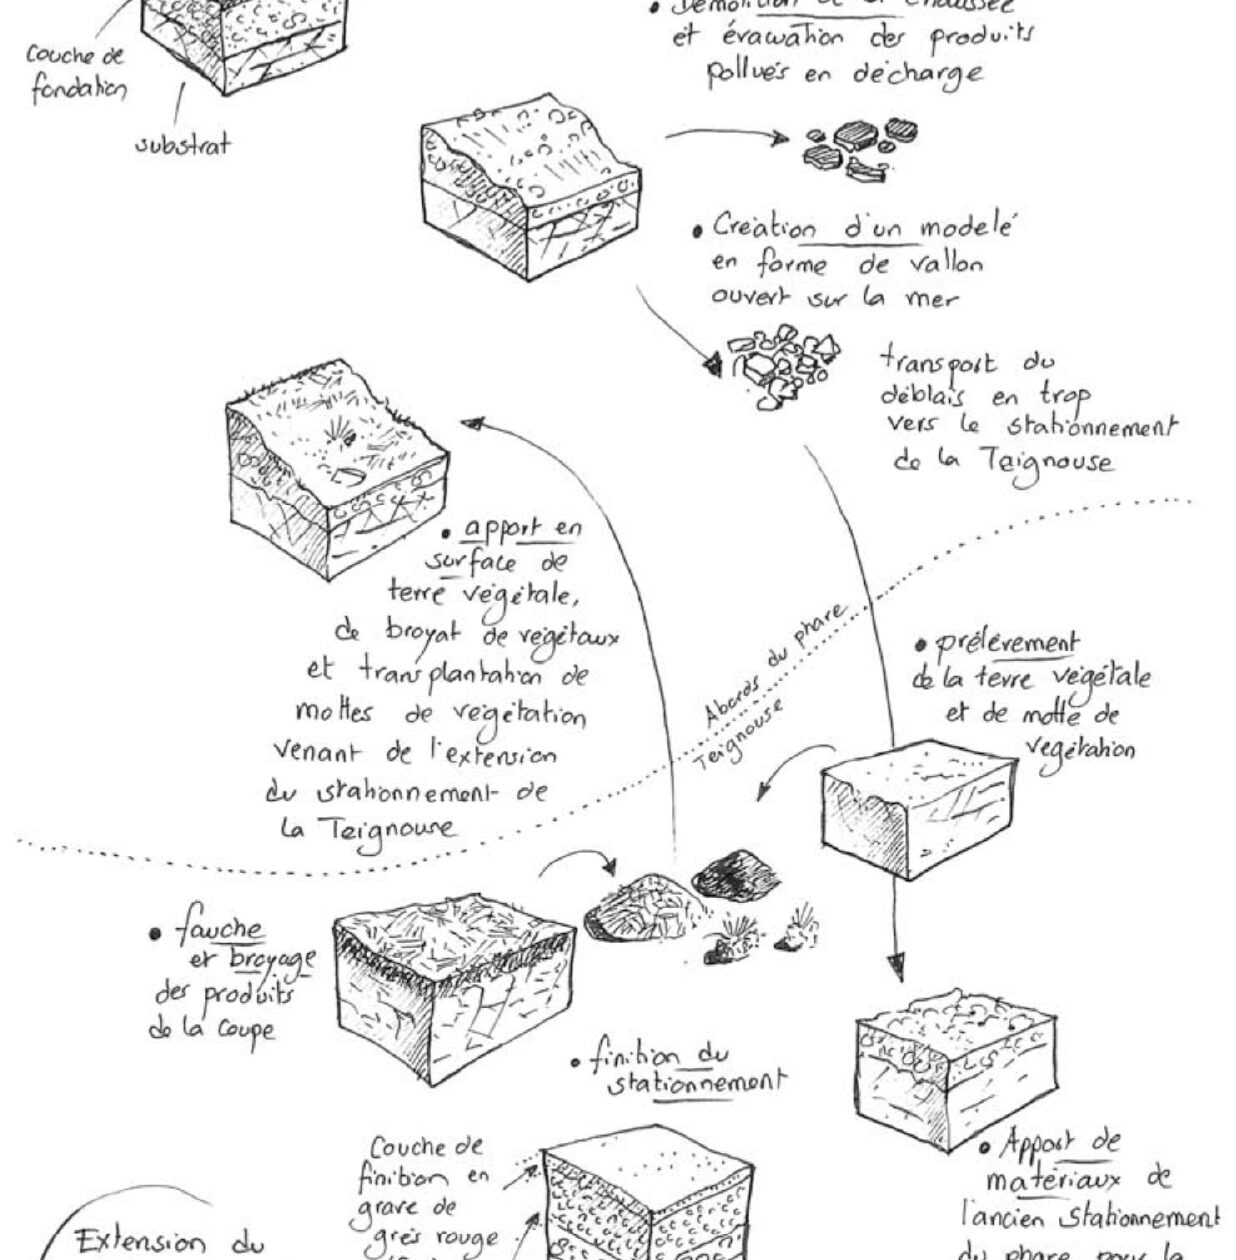 Démolition de la chaussée
et évacuation des produits
pollués en décharge
Couche de
fondation
substrat
Création d'un modelé
en forme de vallon
ouvert sur la mer
transport du
déblais en trop
vers le stationnement
de la Teignouse
apport en
surface de
terre végétale,
de broyat de végétaux
et transplantation de
mottes de végétation
venant de l'extension
du stationnement de
la Teignouse
Abords du phare
Teignouse
prélèvement
de la terre végétale
et de motte de
végétation
fauche
et broyage
des produits
de la coupe
finition du
stationnement
Couche de
finition en
grave de
grès rouge
Apport de
matériaux de
l'ancien stationnement
du phare pour la
Extension du